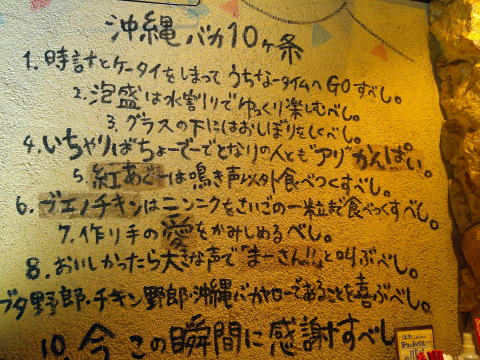 沖縄バカ10ヶ条
1. 時計とケータイをしまってうちなータイムへGOすべし。
2. 泡盛は水割りでゆっくり楽しむべし。
3. グラスの下にはおしぼりをしくべし。
4. いちゃりばちょーでーでとなりの人とも"アリ"かんぱい。
5. 紅あぐーは鳴き声以外食べつくすべし。
6. ブエノチキンはニンニクをさいごの一粒まで食べつくすべし。
7. 作り手の愛をかみしめるべし。
8. おいしかったら大きな声で"まーさん!!"と叫ぶべし。
ブタ野郎・チキン野郎・沖縄バカヤローであることを喜ぶべし。
10. 今この瞬間に感謝すべし